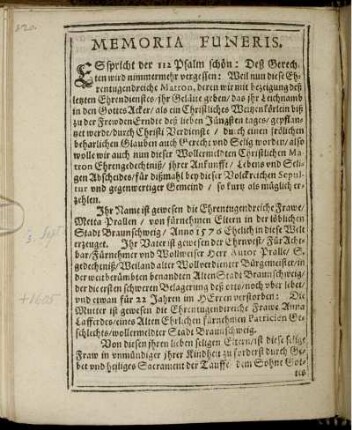 MEMORIA FUNERIS.
ES spricht der 112 Psalm schön: Deß Gerech-
ten wird nimmermehr vergessen: Weil nun diese Eh-
rentugendreiche Matron, deren wir mit bezeigung deß
letzten Ehrendienstes ihr Geläute geben/ das ihr Leichnamb
in den Gottes Acker/ als ein Christliches Weitzen Körlein biß
zu der Frewden Erndte deß lieben Jüngsten tages/ gepflan-
tzet werde/ durch Christi Verdienste / durch einen frölichen
beharlichen Glauben auch Gerecht und Selig worden/ also
wolle wir auch nun dieser Wollermelten Christlichen Ma-
tron Ehrengedechtniß/ ihrer Ankunfft/ Lebens und Seli-
gen Abscheides/ für dißmahl bey dieser Volckreichen Sepul-
tur und gegenwertiger Gemeind / so kurtz als müglich er-
zehlen.
Ihr Name ist gewesen die Ehrentugendreiche Frawe/
Metta Prallen / von fürnehmen Eltern in der löblichen
Stadt Braunschweig/ Anno 1576 Ehelich in diese Welt
erzeuget. Ihr Vater ist gewesen der Ehrnvest/ Für Acht-
bar/ Fürnehmer und Wollweiser Herr Autor Pralle/ S.
gedechtniß/ Weiland alter Wollverdienter Bürgemeister/ in
der weitberümbten benandten Alten Stadt Braunschweig/
der die ersten schweren Belagerung deß orts/ noch uber lebet/
und etwan für 22 Jahren im HErren verstorben: Die
Mutter ist gewesen die Ehrentugendreiche Frawe Anna
Lafferdes/ eines Alten Ehrlichen fürnehmen Patricien Ge-
schlechts/ wollermeldter Stadt Braunschweig.
Von diesen ihren lieben seligen Eltern/ ist diese selige
Fraw in unmündiger ihrer Kindheit zu forderst durch Ge-
bet und heiliges Sacrament der Tauffe dem Sohne Got-
tes
3. Sept
+ 1605